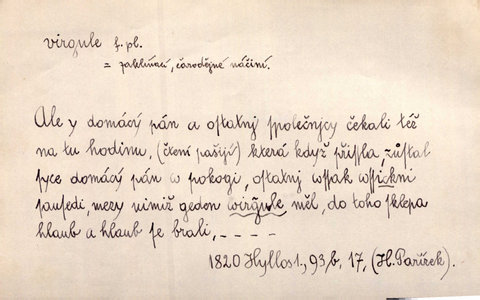 virgule f. pl.
= zaklínací, čarodějné náčiní.
Ale y domácý pán a ostatnj společnjcy čekali též
na tu hodinu, (čtení pašijí) která když přissla, zůstal
syce domácý pán w pokogi, ostatnj wssak wssickni
sausedi, mezy nimiž geden wirgule měl, do toho sklepa
hlaub a hlaub se brali, _ _ _ _
1820 Hyllos 1., 93,b, 17, (H. Pařízek).